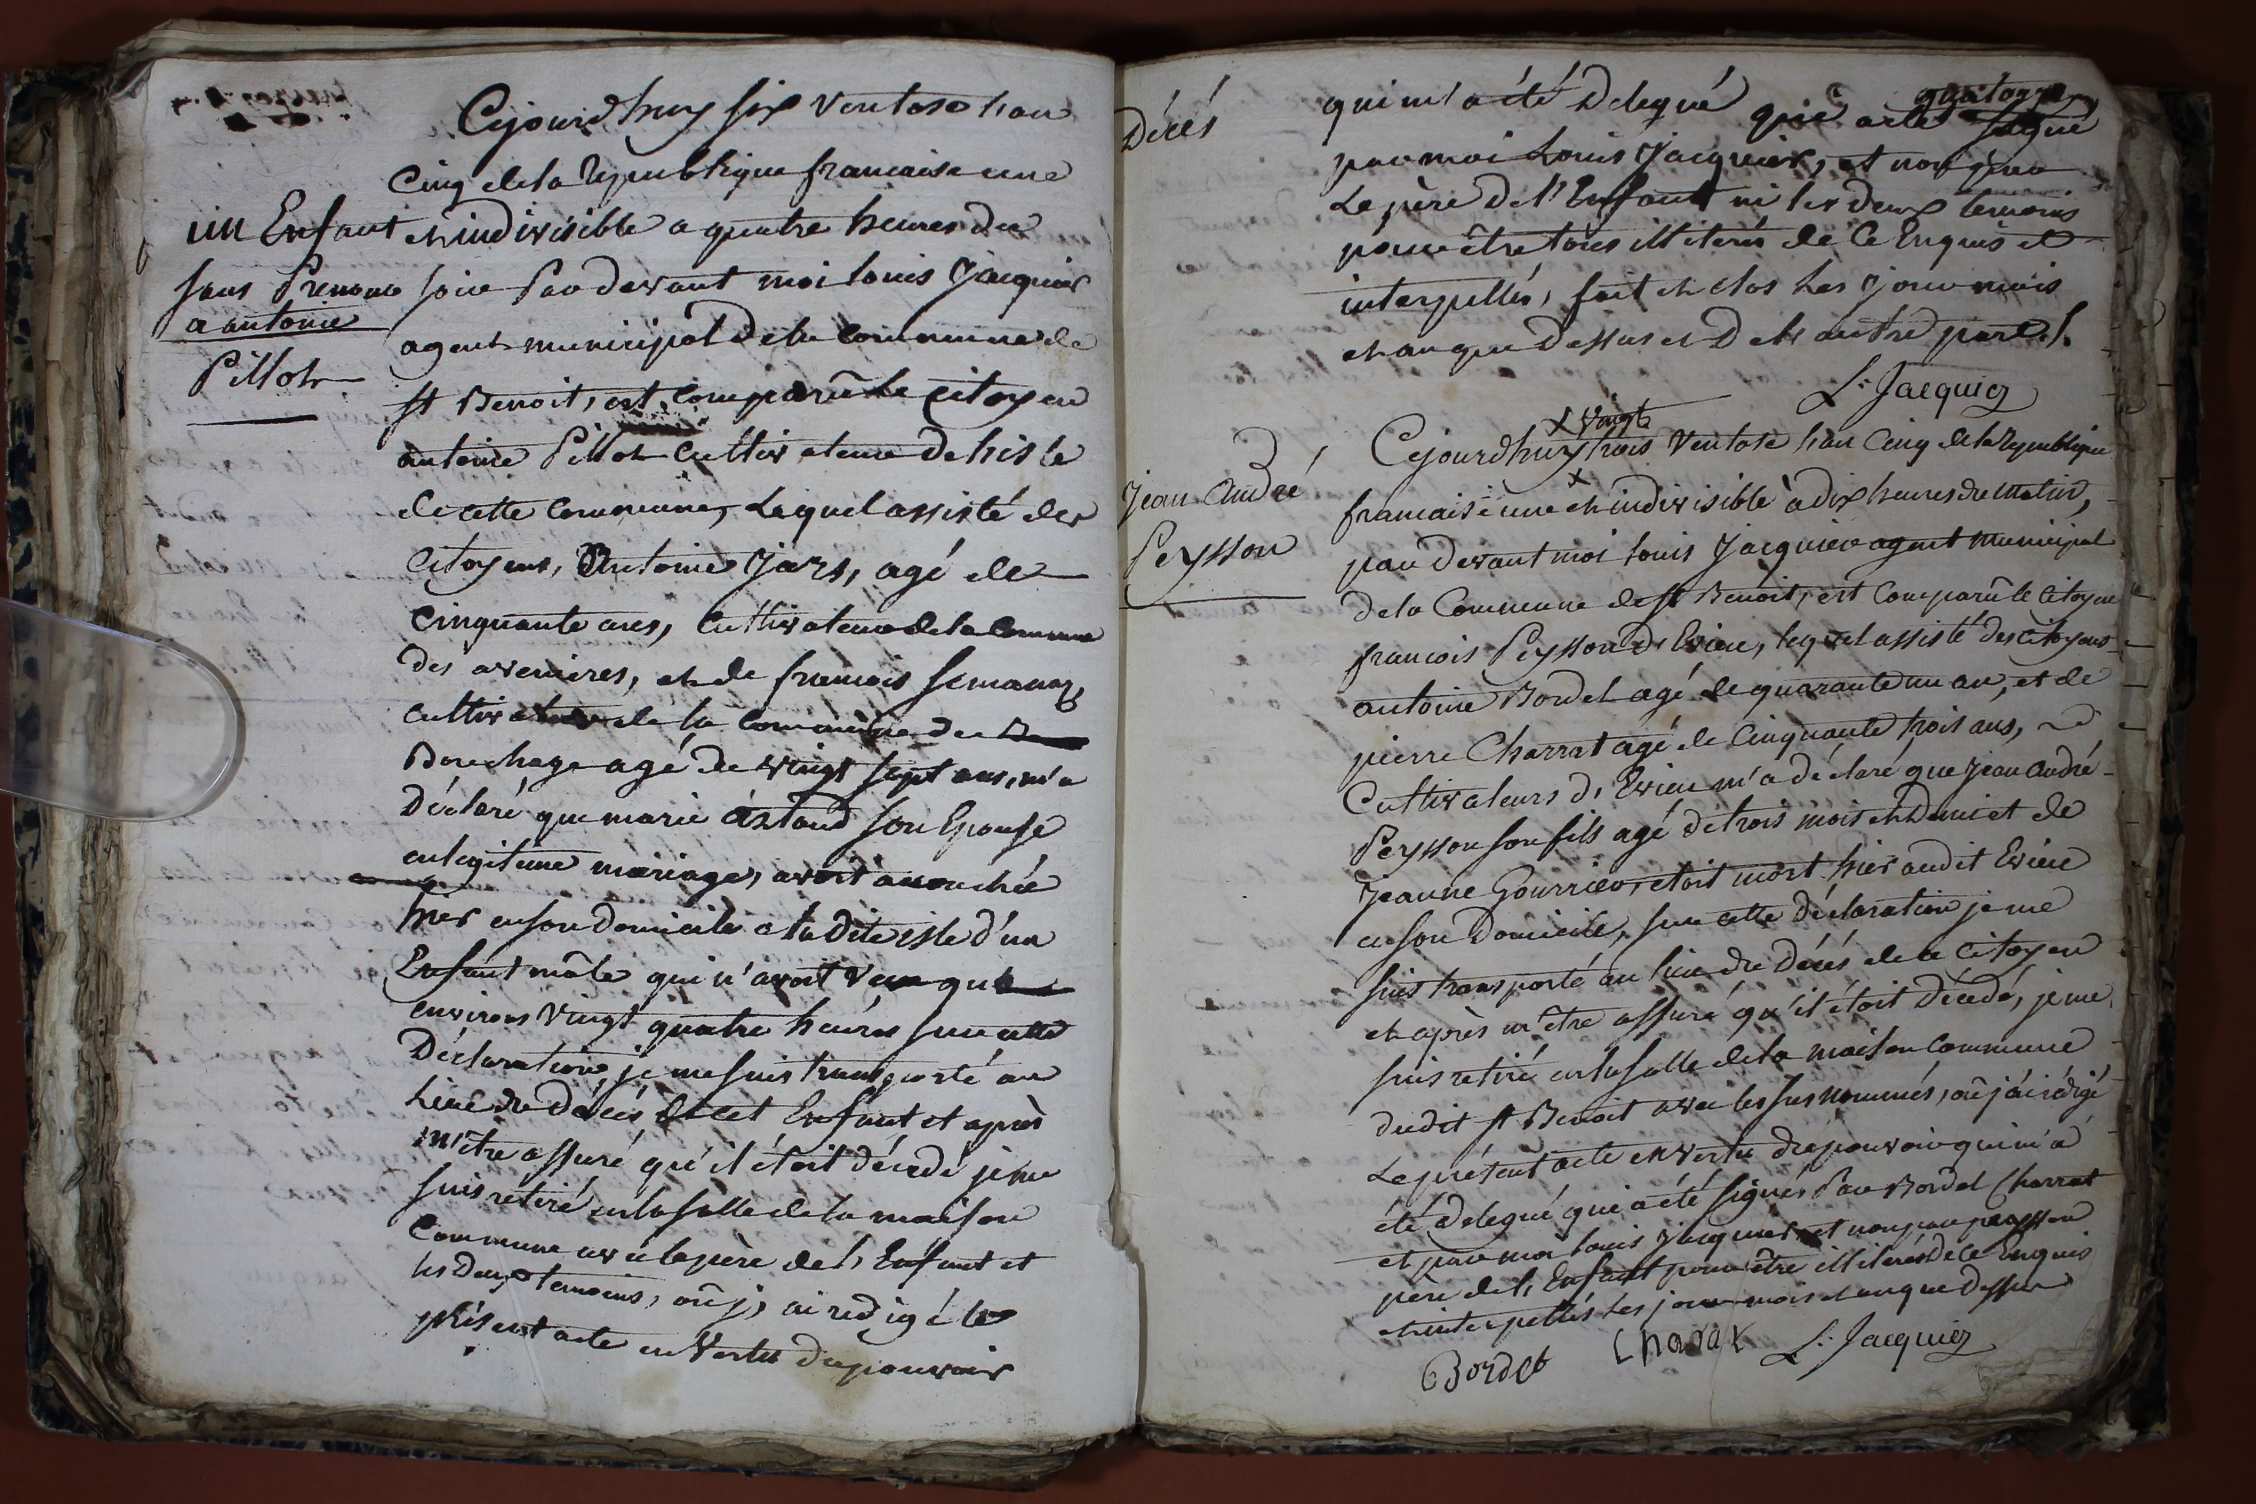 un Enfant
sans Prenom
a antoine
Pillot
Cejourd'huy six Ventose l'an
cinq de la Republique francaise une
et indivisible a quatre heures du
soir Par devant moi Louis Jacquier
agent municipal de la commune de
st Benoit, est comparû le citoyen
antoine Pillot cultivateur de lisle
de cette commune, Lequel assisté des
citoyens, Antoine Jars, agé de
cinquante ans, cultivateur de la commune
des avenires, et de francois
cultivateur de la commune du
Bouchage agé de vingt sept ans, m'a
Déclaré que marie son Epouse
en legitime mariage, avoit accouchée
hier en son Domicile a la Dite isle d'un
Enfant mâle qui n'avoit Vecu que
environs Vingt quatre heures sur cette
Déclaration, je me suis transporté au
Lieu du décés de cet Enfant et après
m'être assuré qu'il étoit décedé je me
suis retiré en la salle de la maison
Commune avec le père de l'Enfant et
les Deux temoins, où j'ai redigé le
présent acte en Vertu du pouvoir
quatorze
Décés
qui m'a été Delegué qui acte signé
par moi Louis Jacquier, et non par
Le père de l'Enfant ni les deux temoins
pour être tous illiterés de ce Enquis et
interpellés, fait et clos les jour mois
et an que Dessus et De l'autre part.
L. Jacquier
Jean André
Peysson
x Vingt
Cejourd'huy x trois Ventose l'an Cinq de la Republique
francaise une et indivisible à dix heures du matin,
par devant moi Louis Jacquier agent municipal
de la Commune de st Benoit, est Comparû le citoyen
francois Peysson d'Evieu, lequel assisté des citoyens
antoine Bordel agé de quarante un an, et de
pierre Charrat agé de Cinquante trois ans,
Cultivateurs d'Evieu m'a déclaré que jean andré
Peysson son fils agé de trois mois et Demi et de
jeanne Gourrier, etoit mort hier audit Evieu
en son Domicile, sur cette Déclaration je me
suis transporté au lieu du Décés de ce Citoyen
et après m'être assuré qu'il étoit Décedé, je me
suis retiré en la salle de la maison Commune
dudit st Benoit avec les susnommés, où j'ai rédigé
Le présent acte en vertu du pouvoir qui m'a
été Delegué qui a été signés Par Bordel Charrat
et par moi Louis Jacquier, et non par peysson
père de l'Enfant pour être illiterés de ce Enquis
et interpellés Les jour mois et an que Dessus
Bordel Charat L. Jacquier